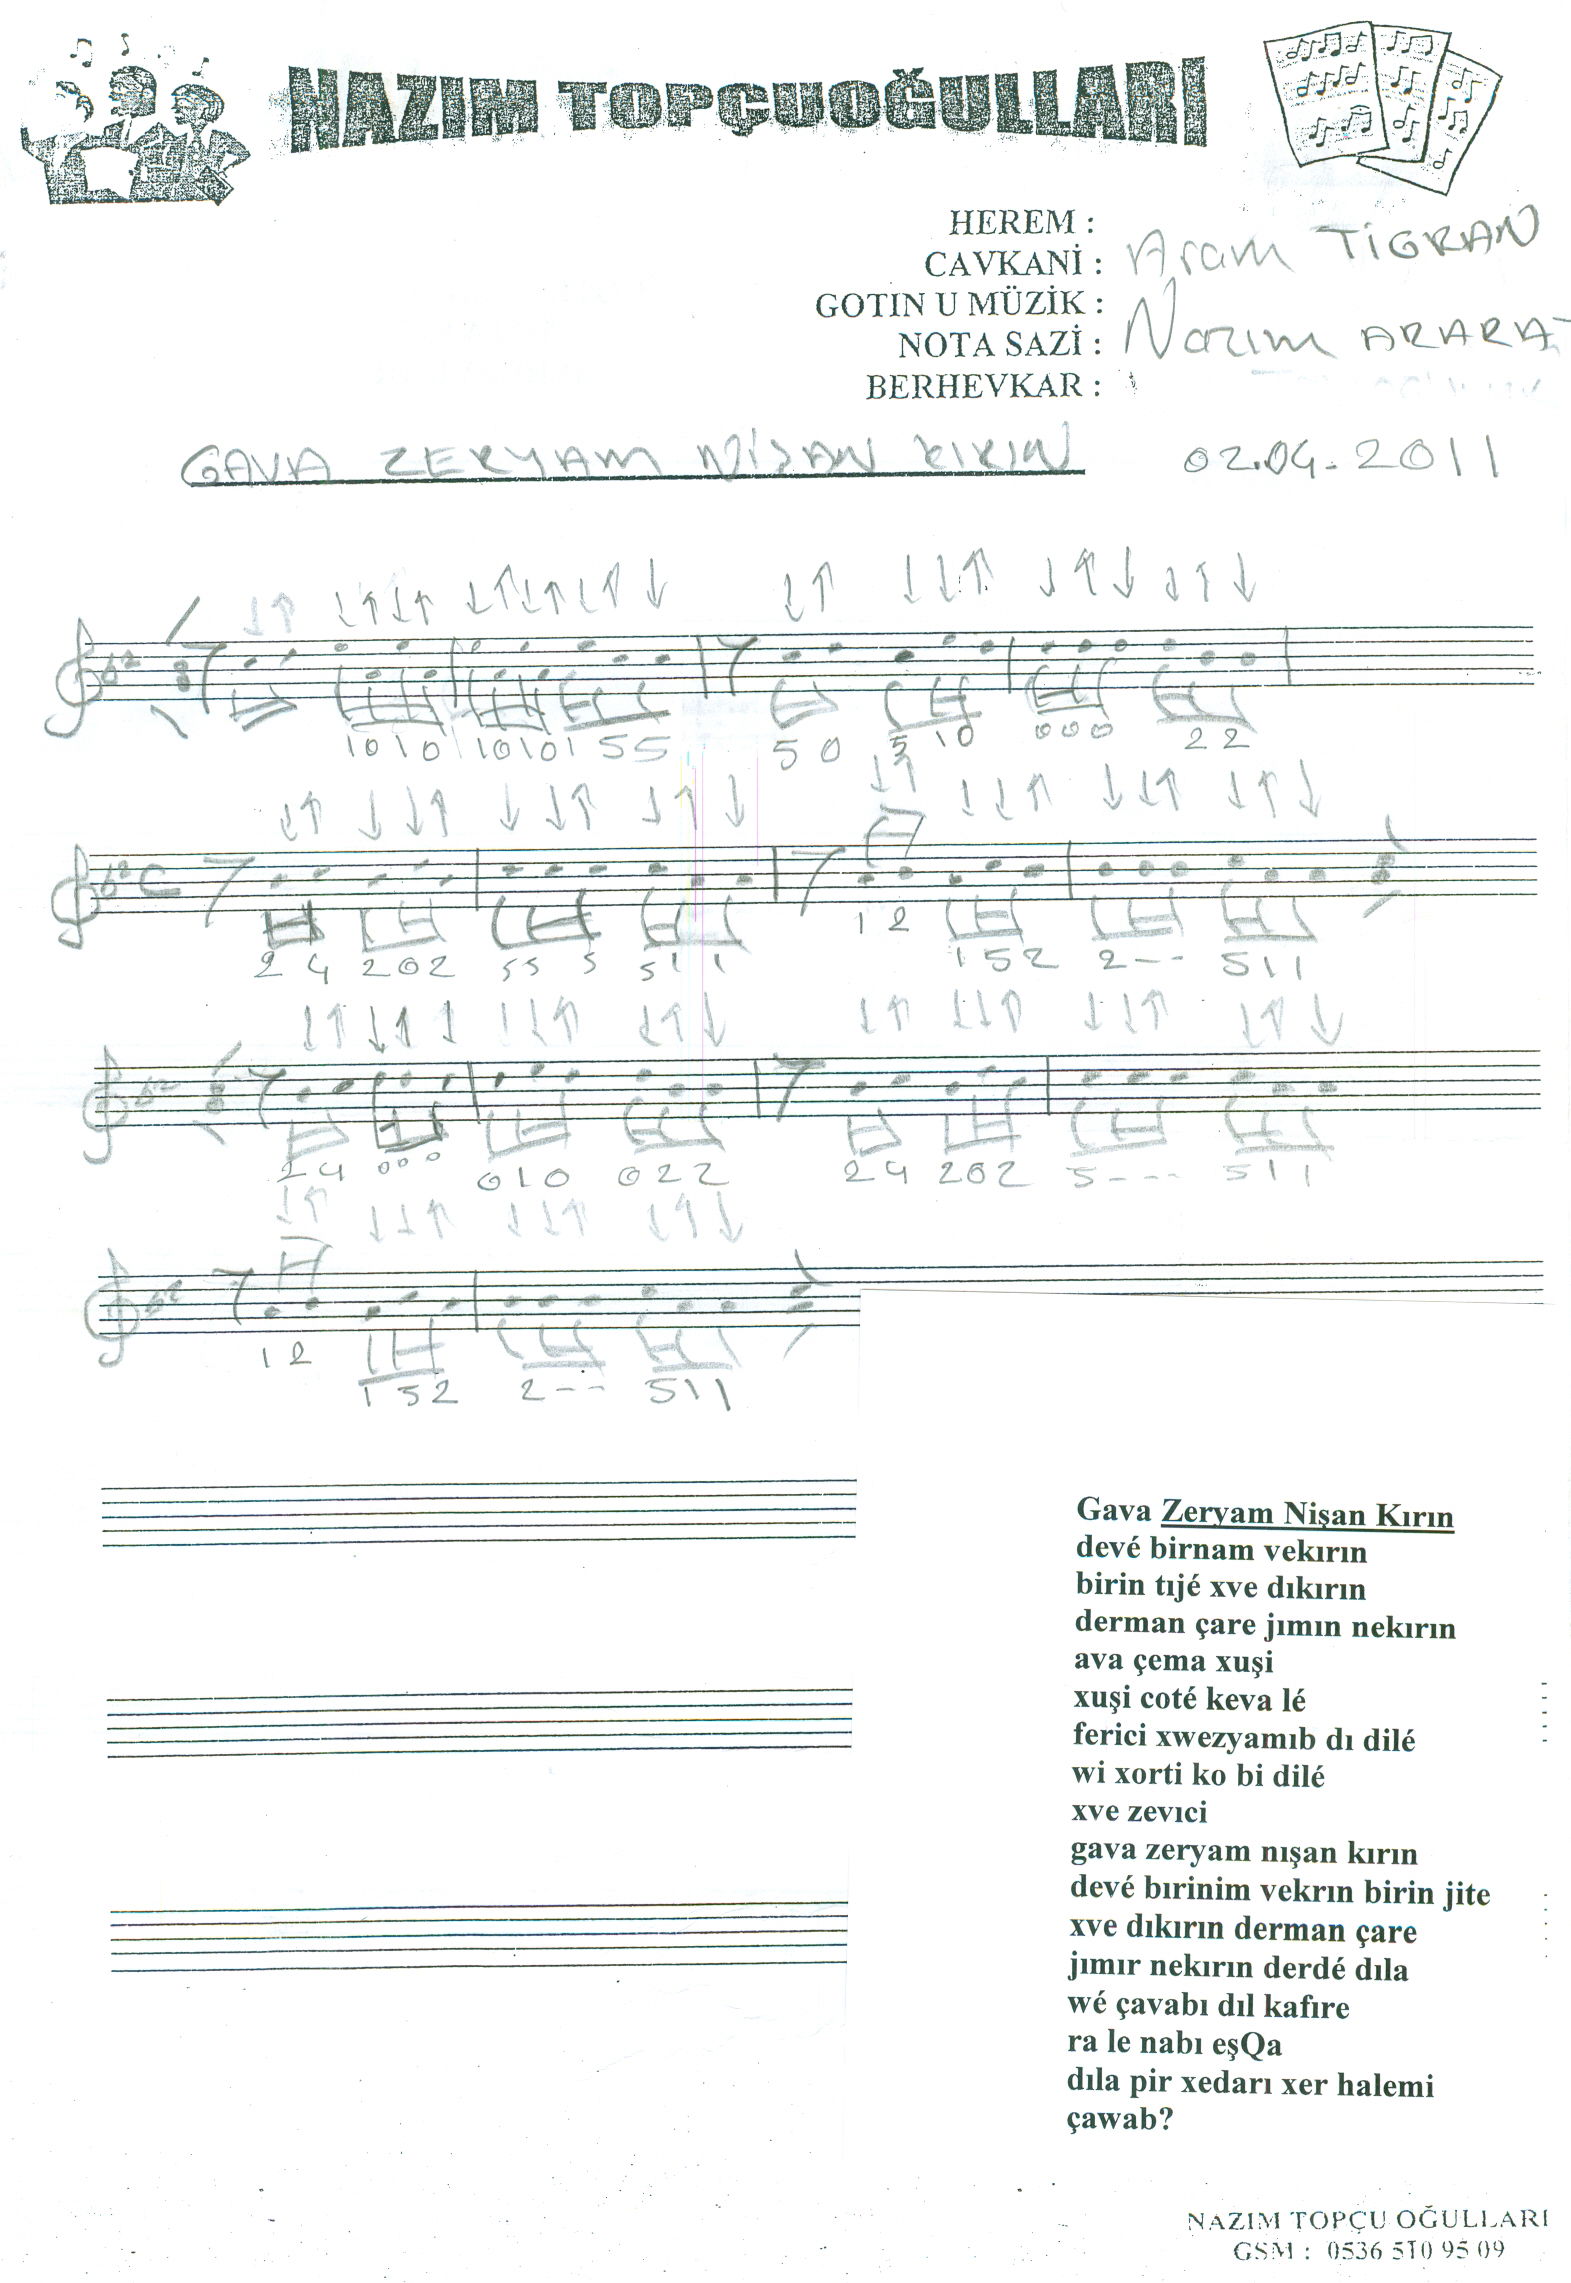 NAZIM TOPÇUOĞULLARI
HEREM :
CAVKANİ : Aram TİGRAN
GOTIN U MÜZİK :
NOTA SAZİ : Nazım ARARA
BERHEVKAR :
GAVA ZERYAM NİŞAN KIRIN 02.04.2011
1010 10101 55 50 5 10 000 22
24 202 55 5 511 12 152 2-- 511
24 000 010 022 24 202 5--- 511
12 152 2-- 511
Gava Zeryam Nişan Kırın
devé birnam vekırın
birin tıjé xve dıkırın
derman çare jımın nekırın
ava çema xuşi
xuşi coté keva lé
ferici xwezyamıb dı dilé
wi xorti ko bi dilé
xve zevıci
gava zeryam nışan kırın
devé bırinim vekrın birin jite
xve dıkırın derman çare
jımır nekırın derdé dıla
wé çavabı dıl kafıre
ra le nabı eşQa
dıla pir xedarı xer halemi
çawab?
NAZIM TOPÇU OĞULLARI
GSM : 0536 510 95 09